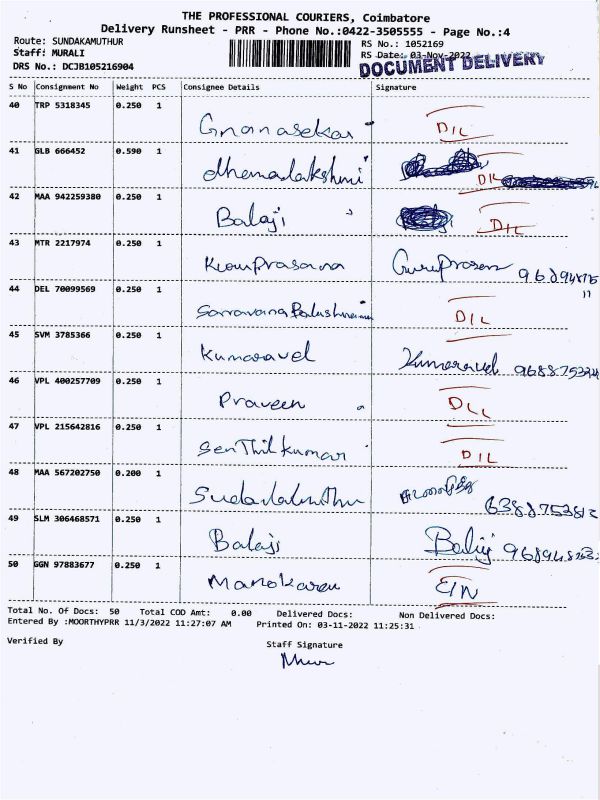 THE PROFESSIONAL COURIERS, Coimbatore
Delivery Runsheet - PRR - Phone No.:0422-3505555 - Page No.:4
Route: SUNDAKAMUTHUR RS No.: 1052169
Staff: MURALI RS Date: 03-Nov-2022
DRS No.: DCJB105216904 DOCUMENT DELIVERY
S No Consignment No Weight PCS Consignee Details Signature
40 TRP 5318345 0.250 1 Gnanasekar DIL
41 GLB 666452 0.590 1 dhanalakshmi DIL
42 MAA 942259380 0.250 1 Balaji DIL
43 MTR 2217974 0.250 1
44 DEL 70099569 0.250 1 DIL
45 SVM 3785366 0.250 1 Kumaravel Kumaravel
46 VPL 400257709 0.250 1 Praveen
47 VPL 215642816 0.250 1 Senthilkumar DIL
48 MAA 567202750 0.200 1
49 SLM 306468571 0.250 1 Balaji Balaji
50 GGN 97883677 0.250 1 Manokaran
Total No. Of Docs: 50 Total COD Amt: 0.00 Delivered Docs: Non Delivered Docs:
Entered By :MOORTHYPRR 11/3/2022 11:27:07 AM Printed On: 03-11-2022 11:25:31
Verified By Staff Signature